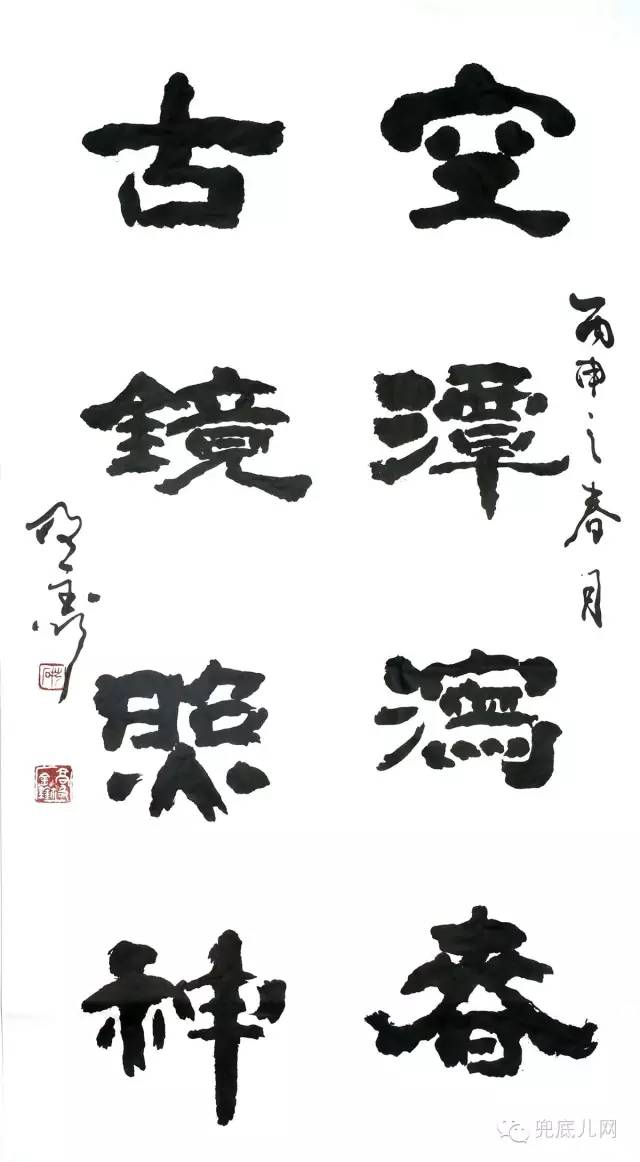 丙申之春月
空潭瀉春
古鏡照神
兜底儿网